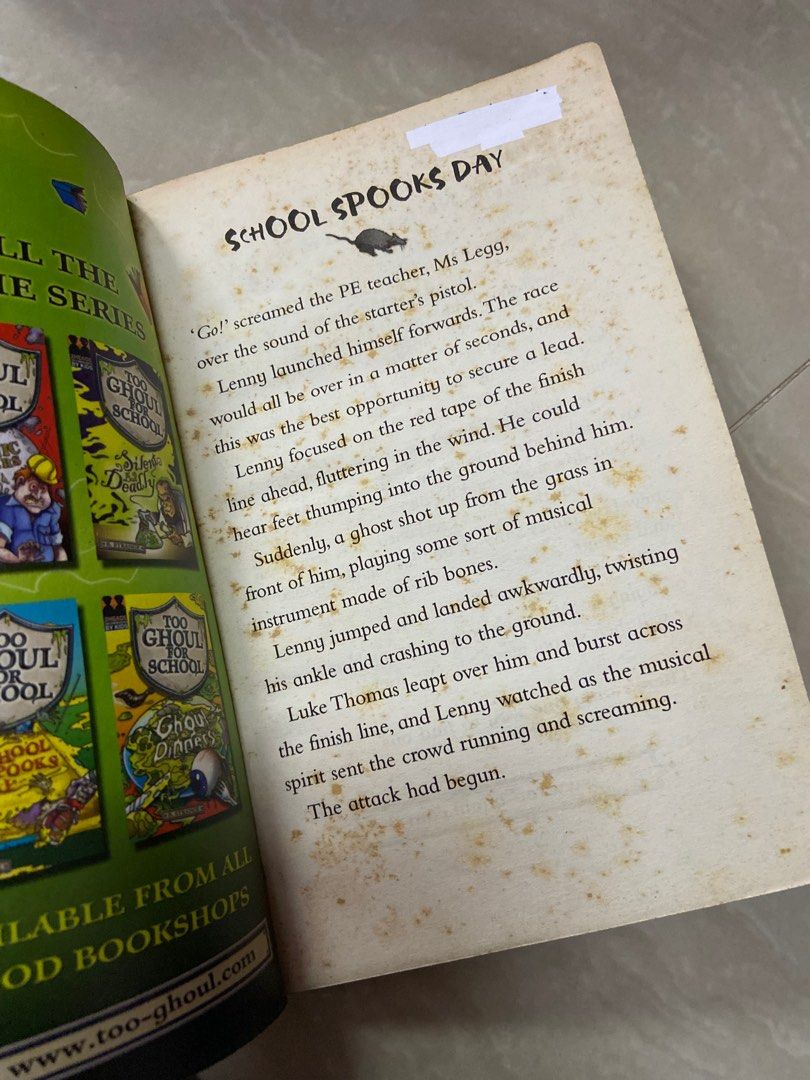 LL THE
E SERIES
TOO
GHOUL
FOR
SCHOOL
Silent
But
Deadly
B. STRANGE
TOO
GHOUL
FOR
SCHOOL
Ghoul
Dinners
B. STRANGE
OO
HOUL
OR
HOOL
CHOOL
POOKS
ILABLE FROM ALL
OD BOOKSHOPS
www.too-ghoul.com
SCHOOL SPOOKS DAY
‘Go!’ screamed the PE teacher, Ms Legg,
over the sound of the starter’s pistol.
Lenny launched himself forwards. The race
would all be over in a matter of seconds, and
this was the best opportunity to secure a lead.
Lenny focused on the red tape of the finish
line ahead, fluttering in the wind. He could
hear feet thumping into the ground behind him.
Suddenly, a ghost shot up from the grass in
front of him, playing some sort of musical
instrument made of rib bones.
Lenny jumped and landed awkwardly, twisting
his ankle and crashing to the ground.
Luke Thomas leapt over him and burst across
the finish line, and Lenny watched as the musical
spirit sent the crowd running and screaming.
The attack had begun.